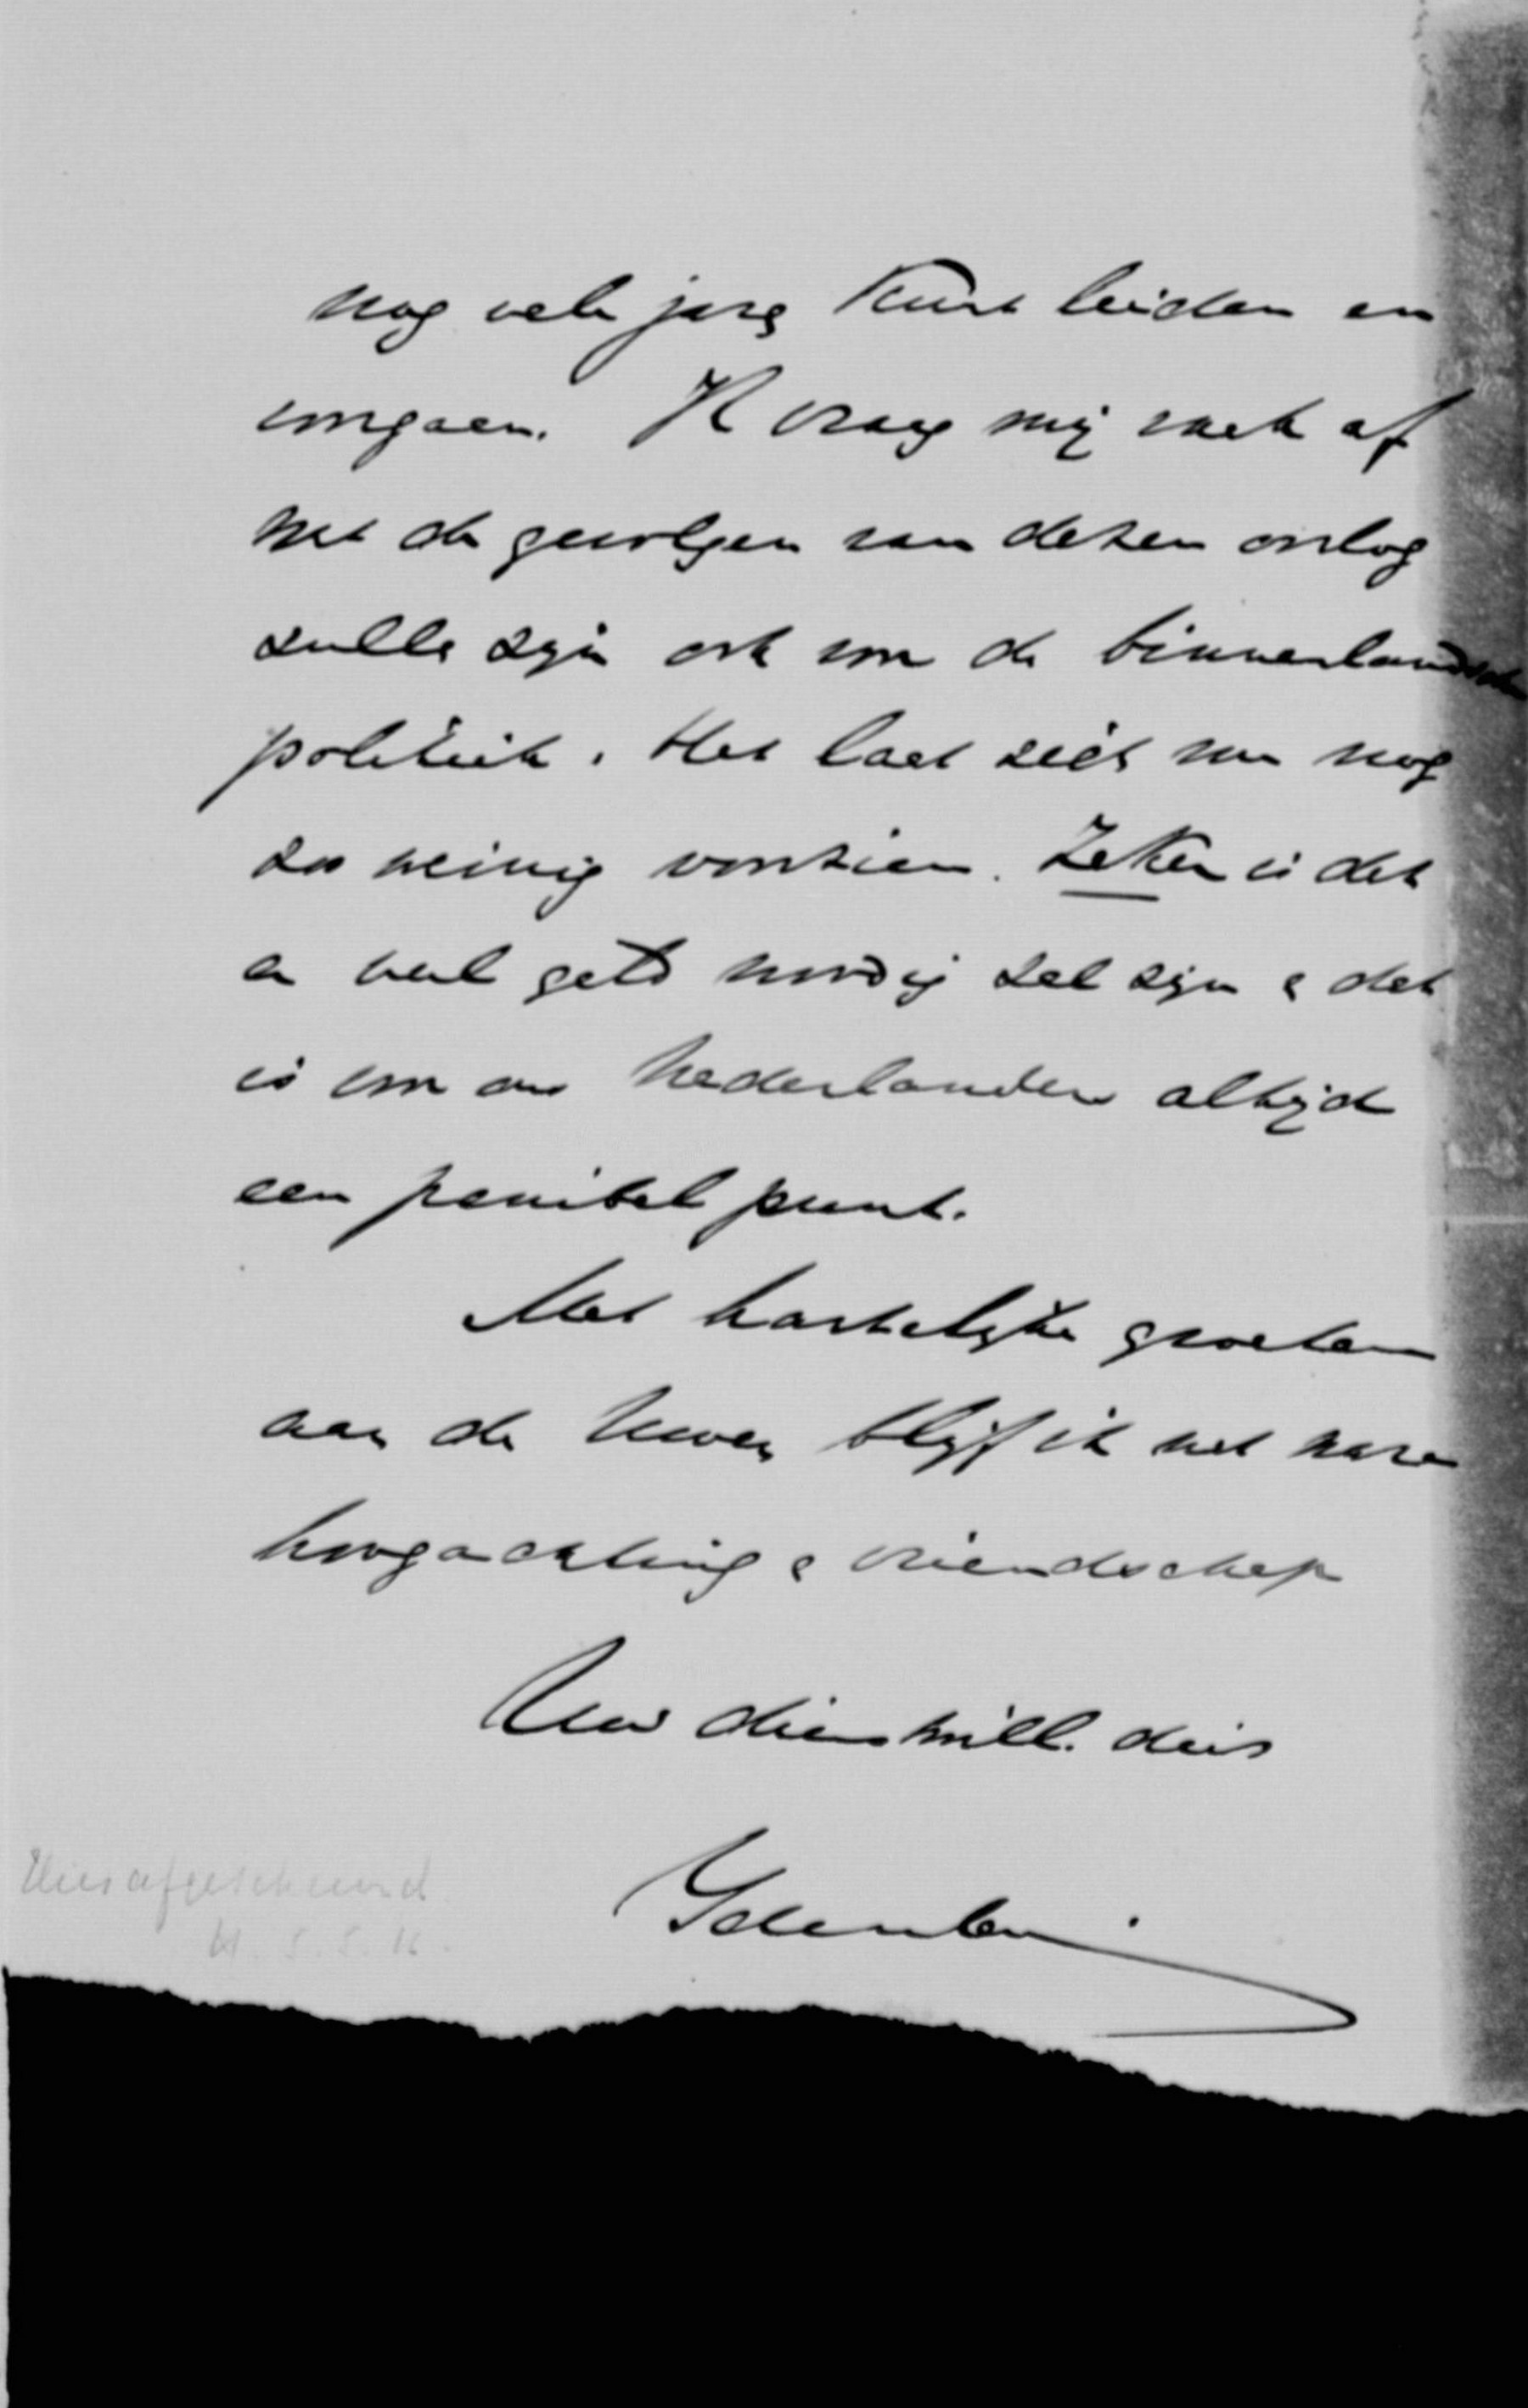 nog vele jare kunt leiden en
voorgaan. Ik vraag mij vaak af
wat de gevolgen van dezen oorlog
zulle zijn ook voor de binnenlandsche
politiek. Het laat zich nu nog
zoo weinig voorzien. Zeker is dat
er veel geld noodig zal zijn & dat
is voor ons Nederlanders altijd
een penibel punt.
Met hartelijke groeten
aan de Uwen blijf ik met ware
hoogachting & vriendschap
Uw dienstwill. dien
Idenburg
Hier afgescheurd
5.5.16.